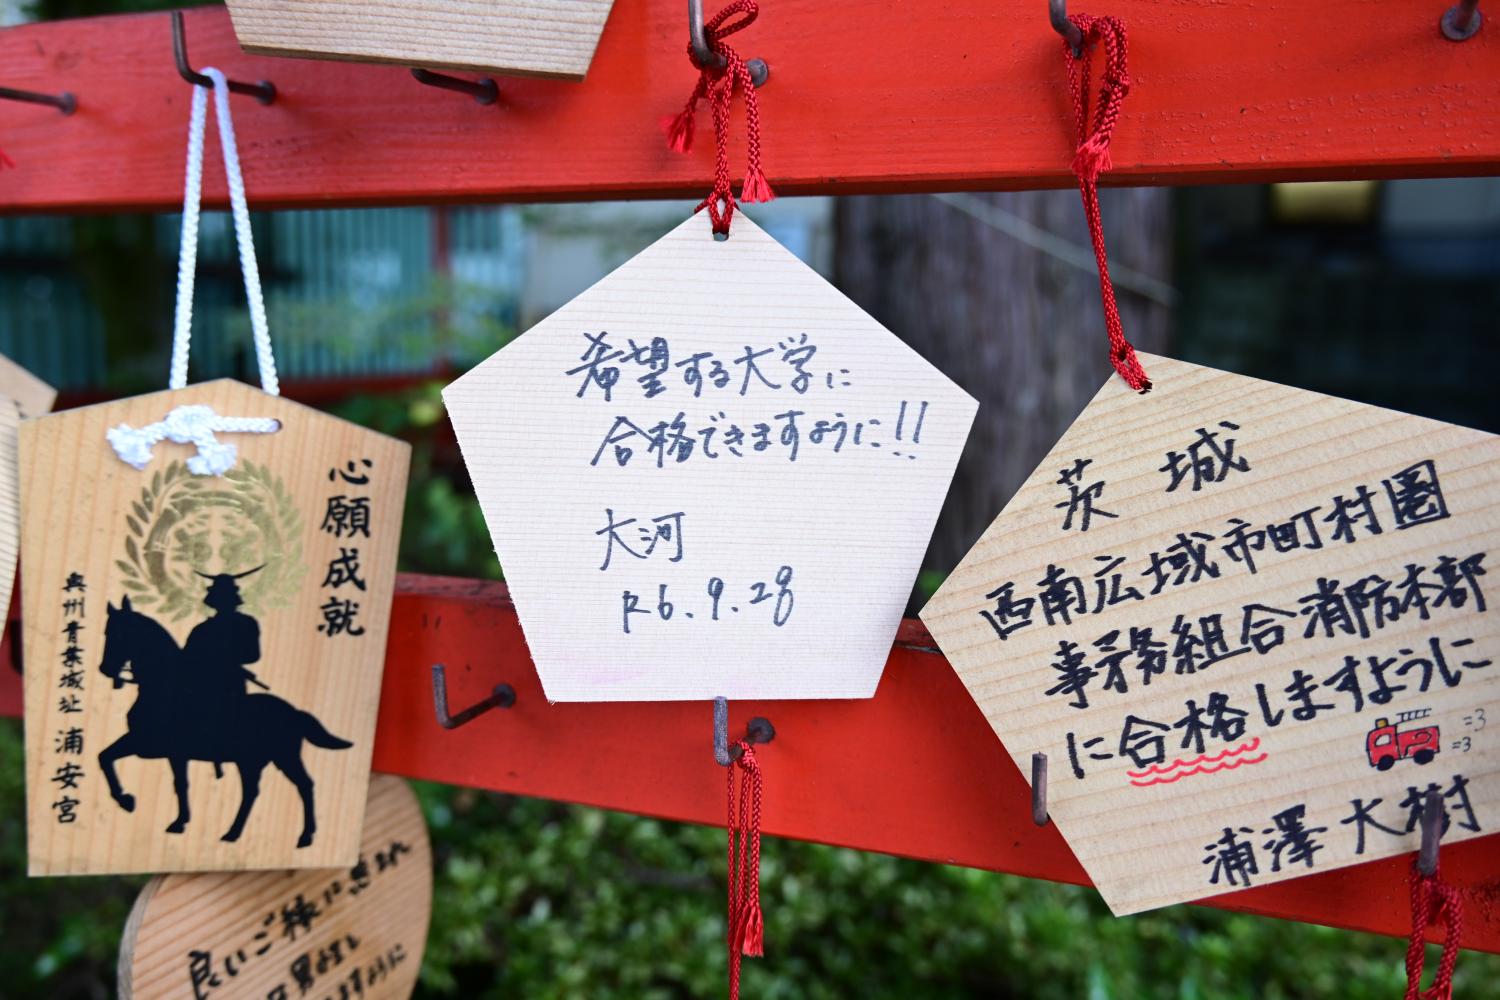 心願成就
奥州青葉城址 浦安宮
希望する大学に
合格できますように!!
大河
R6.9.28
茨城
西南広域市町村圏
事務組合消防本部
に合格しますように
浦澤大樹
良いご縁に恵まれ
ますように